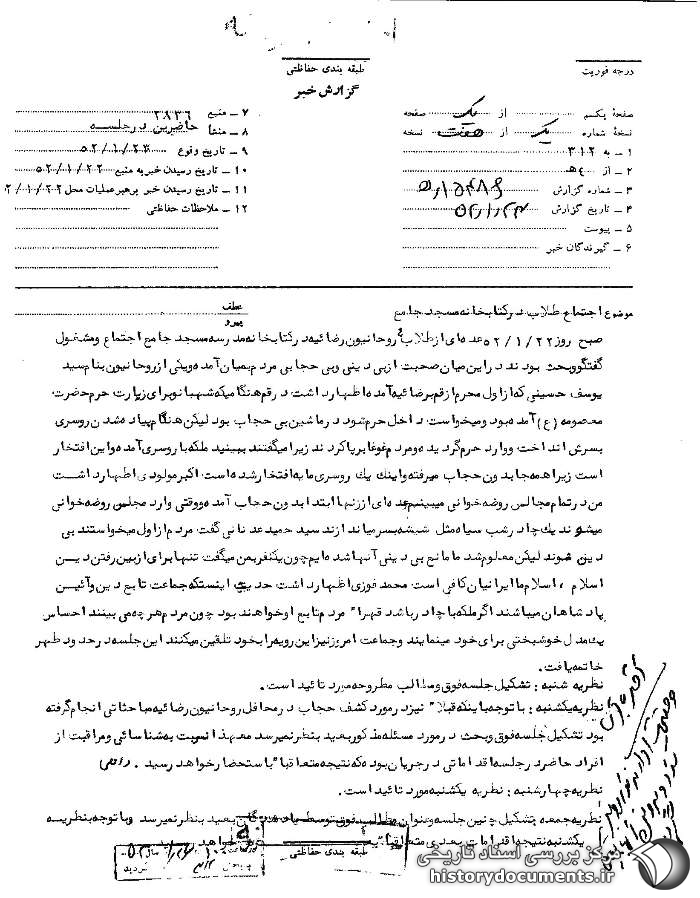 طبقه بندی حفاظتی
درجه فوریت
گزارش خبر
صفحهٔ یکم از یک صفحه
نسخهٔ شماره یک از هفت نسخه
۱ ـ به ۳۱۲
۲ ـ از ۴ هـ
۳ ـ شماره گزارش
۴ ـ تاریخ گزارش
۵ ـ پیوست
۶ ـ گیرندگان خبر
۷ ـ منبع ۲۸۳۶
۸ ـ منشأ حاضرین در جلسه
۹ ـ تاریخ وقوع ۵۲/۱/۲۲
۱۰ ـ تاریخ رسیدن خبر به منبع ۵۲/۱/۲۲
۱۱ ـ تاریخ رسیدن خبر برهبر عملیات محل ۵۲/۱/۲۲
۱۲ ـ ملاحظات حفاظتی
موضوع اجتماع طلاب در کتابخانه مسجد جامع
عطف
پیرو
صبح روز ۵۲/۱/۲۲ عده ای از طلاب و روحانیون رضائیه در کتابخانه مدرسه مسجد جامع اجتماع و مشغول
گفتگو و بحث بودند در این میان صحبت از بی دینی و بی حجابی مردم بمیان آمد و یکی از روحانیون بنام سید
یوسف حسینی که از اول محرم از قم برضائیه آمده اظهار داشت در قم هنگامیکه شهبانو برای زیارت حرم حضرت
معصومه (ع) آمده بود و میخواست داخل حرم شود در ماشین بی حجاب بود لیکن هنگام پیاده شدن روسری
بسرش انداخت و وارد حرم گردید و مردم غوغا برپا کردند زیرا میگفتند ببینید ملکه با روسری آمده و این افتخار
است زیرا همه جا بدون حجاب میرفته و اینك یك روسری مایه افتخار شده است اکبر مولودی اظهار داشت
من در تمام مجالس روضه خوانی میبینم عده ای از زنها ابتدا بدون حجاب آمده و وقتی وارد مجلس روضه خوانی
میشوند یك چادر شب سیاه مثل شیشه بسر میاندازند سید حمید عدنانی گفت مردم از اول میخواستند بی
دین شوند لیکن معلوم شد ما مانع بی دینی آنها شده ایم چون یکنفر بمن میگفت تنها برای از بین رفتن دین
اسلام ، اسلام ما ایرانیان کافی است محمد فوزی اظهار داشت حدیث اینستکه جماعت تابع دین و آئین
پادشاهان میباشند اگر ملکه با چادر باشد قهرا" مردم تابع او خواهند بود چون مردم هر چه می بینند احساس
یك مدل خوشبختی برای خود مینمایند و جماعت امروز نیز این رویه را بخود تلقین میکنند این جلسه در حدود ظهر
خاتمه یافت.
نظریه شنبه : تشکیل جلسه فوق و مطالب مطروحه مورد تائید است .
نظریه یکشنبه : با توجه باینکه قبلا" نیز در مورد کشف حجاب در محافل روحانیون رضائیه مباحثاتی انجام گرفته
بود تشکیل جلسه فوق و بحث در مورد مسئله مذکور بعید بنظر نمیرسد معهذا نسبت به شناسائی و مراقبت از
افراد حاضر در جلسه اقداماتی در جریان بوده که نتیجه متعاقبا" باستحضار خواهد رسید .
نظریه چهارشنبه : نظریه یکشنبه مورد تائید است .
نظریه جمعه تشکیل چنین جلسه و عنوان مطالب فوق توسط بعید بنظر نمیرسد و با توجه بنظریه
یکشنبه نتیجه اقدامات بعدی متعاقبا" خواهد شد
طبقه بندی حفاظتی
مرکز بررسی اسناد تاریخی
historydocuments.ir